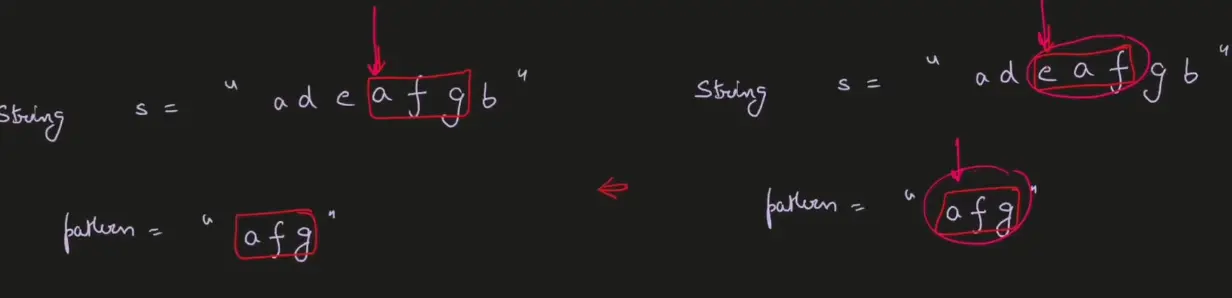 String s = " a d e a f g b "
pattern = " a f g "
String s = " a d e a f g b "
pattern = " a f g "